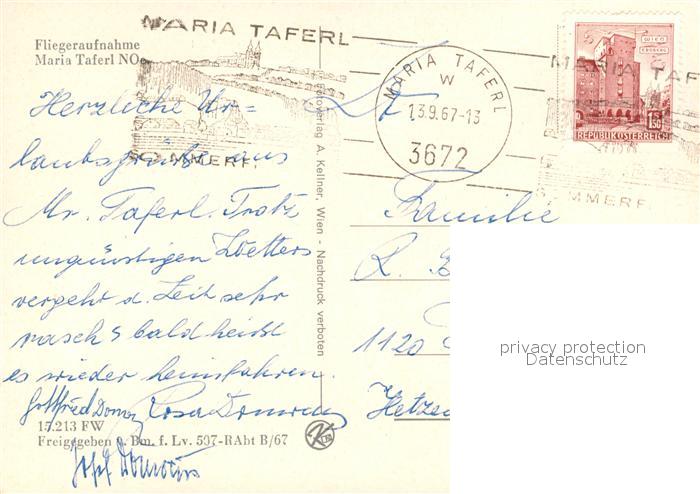 Fliegeraufnahme
Maria Taferl NOe
MARIA TAFERL
SOMMERF.
MARIA TAFERL
W
13.9.67-13
3672
WIEN
ERDBERG
1.50
REPUBLIK ÖSTERREICH
MARIA TAF
SOMMERF.
Herzliche Ur=
laubsgrüße aus
Mr. Taferl. Trotz
ungünstigen Wetters
vergeht d. Zeit sehr
rasch & bald heißt
es wieder heimfahren.
Gottfried
Rosa
Josef
15.213 FW
Freigegeben v. Bm. f. Lv. 507-RAbt B/67
Fotoverlag A. Kellner, Wien - Nachdruck verboten
Familie
R.
1120
Hetzen
privacy protection
Datenschutz